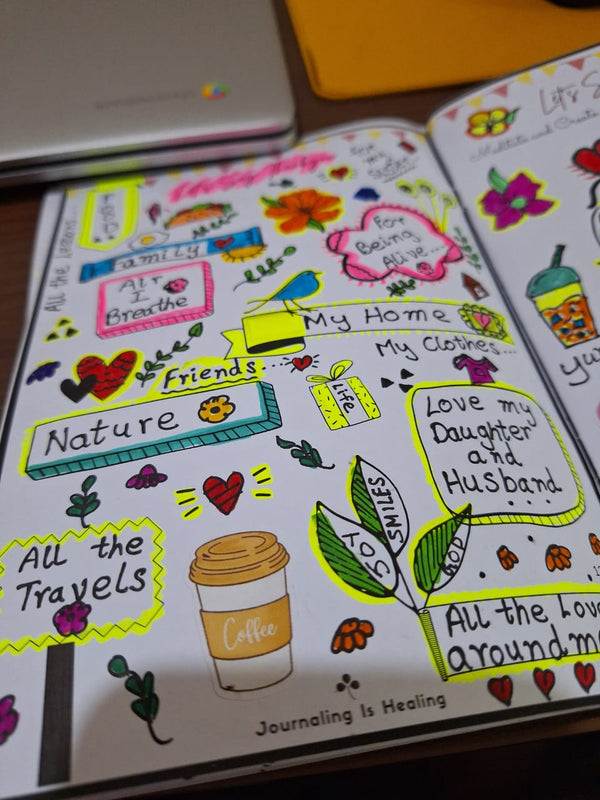 All the lessons...
FOOD
Family
Air
I
Breathe
For
Being
Alive...
My Home
My Clothes...
Friends...
Life
Nature
Love my
Daughter
and
Husband
...
SMILES
JOY
GOD
All the
Travels
Coffee
All the Love
around me
Journaling Is Healing
Let's S
Meditate and Create
yu